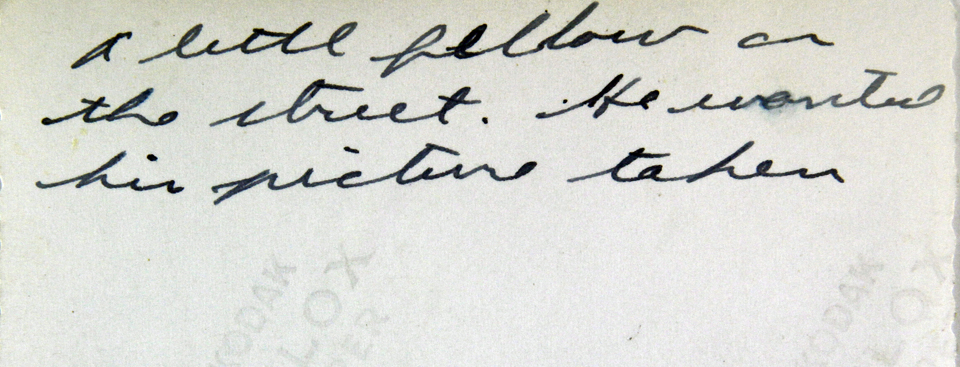 A little fellow on
the street. He wanted
his picture taken
KODAK
LOX
PER
KODAK
LOX
PER